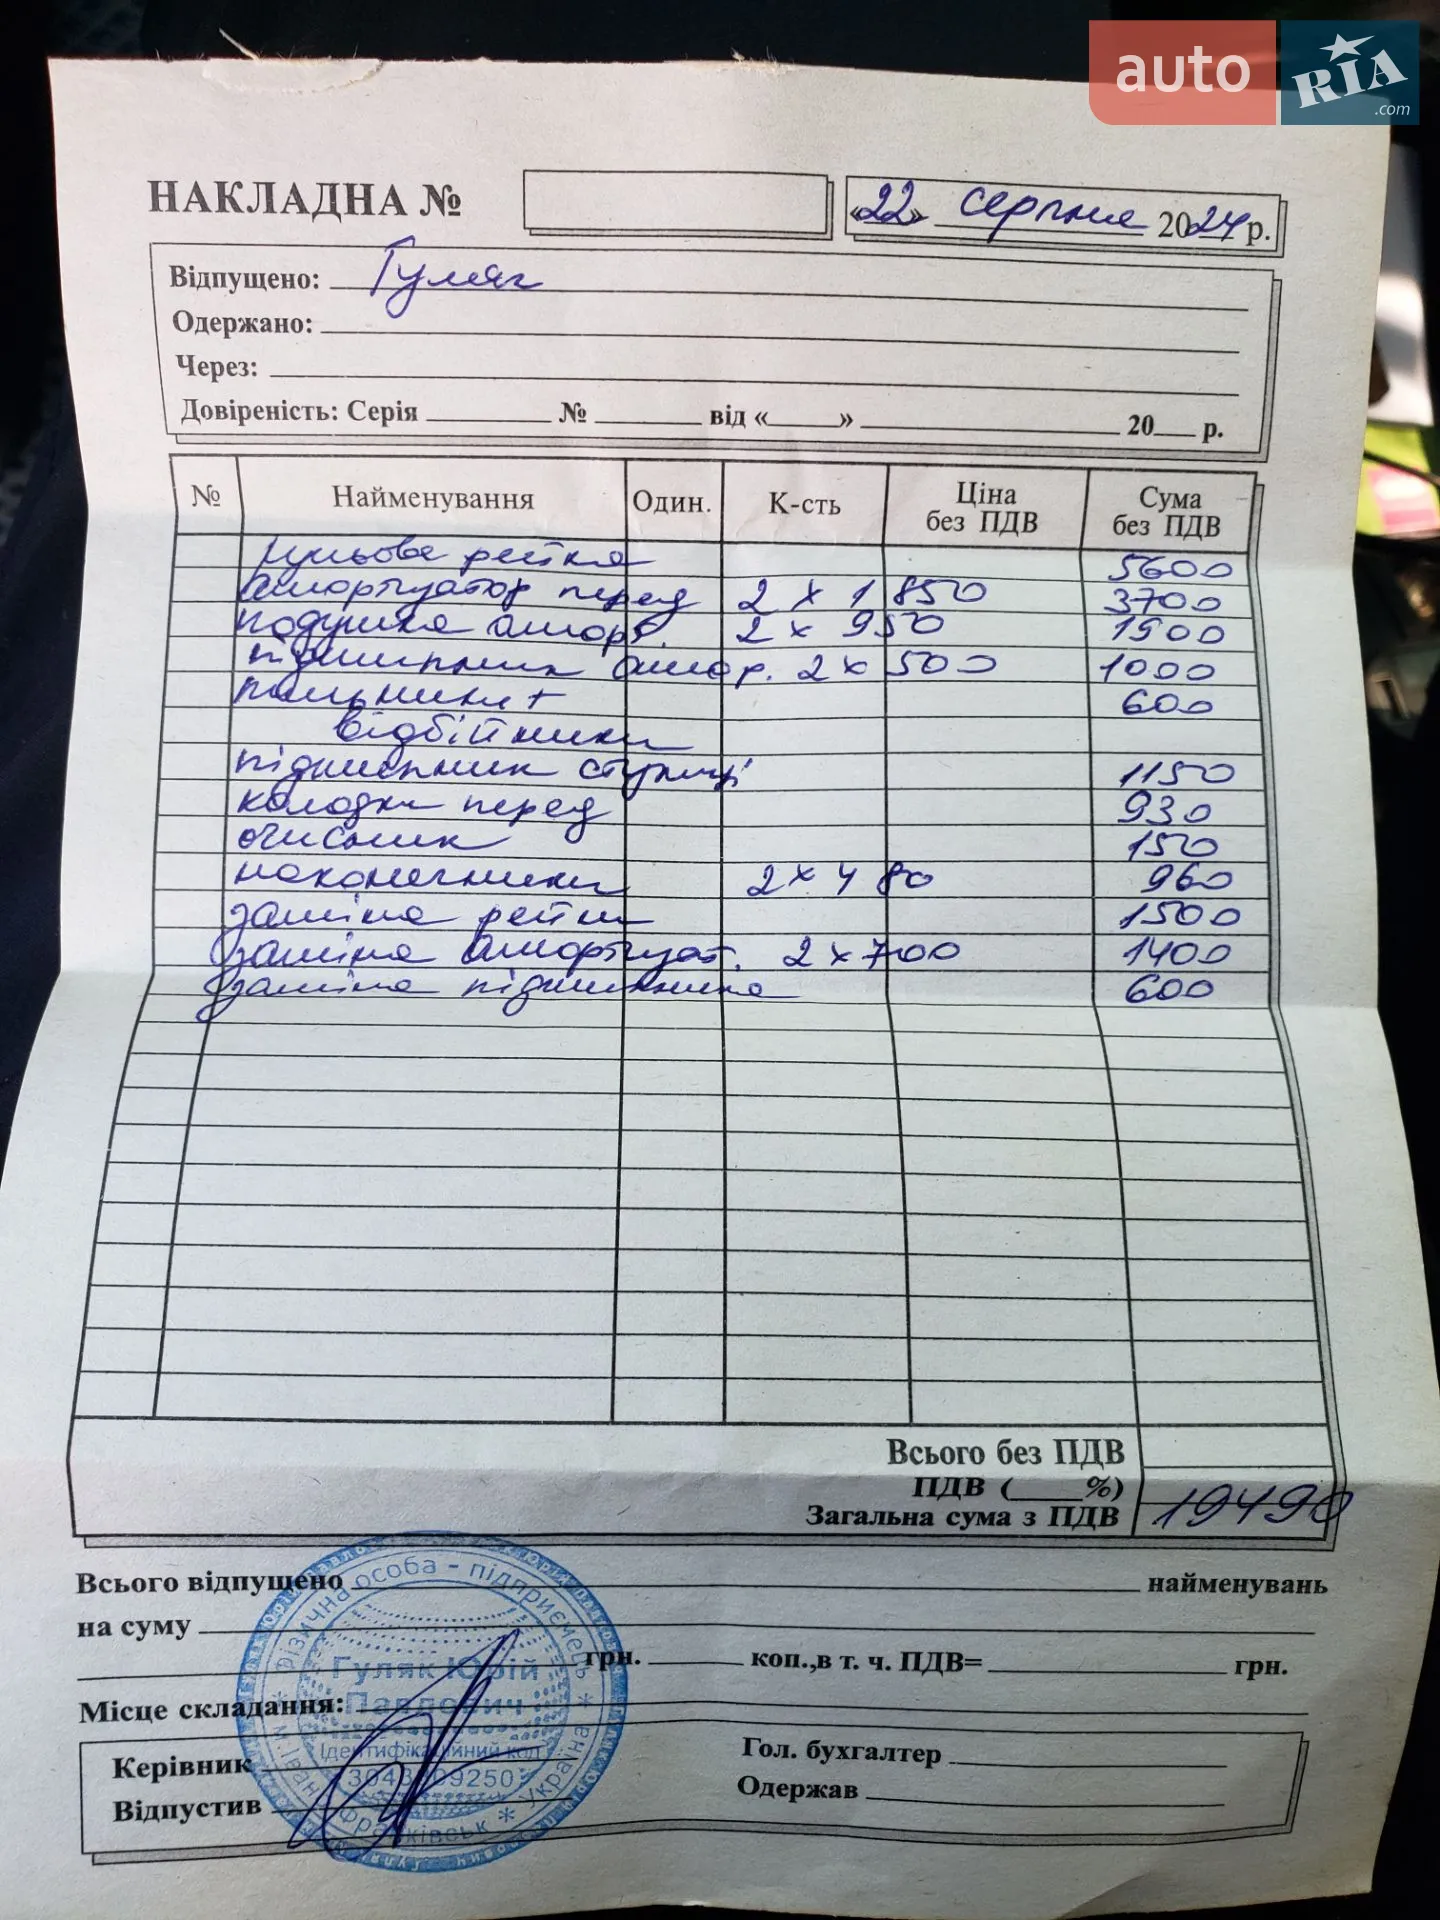 auto RIA.com
НАКЛАДНА № «22» серпня 2024 р.
Відпущено: Гуляк
Одержано:
Через:
Довіреність: Серія № від « » 20 р.
№ Найменування Один. К-сть Ціна без ПДВ Сума без ПДВ
рульова рейка 5600
амортизатор перед 2 х 1850 3700
подушка аморт. 2 х 950 1900
підшипник амор. 2 х 500 1000
пильники + 600
відбійники
підшипник ступиці 1150
колодки перед 930
очисник 150
наконечники 2 х 480 960
заміна рейки 1500
заміна амортизат. 2 х 700 1400
заміна підшипника 600
Всього без ПДВ
ПДВ ( %)
Загальна сума з ПДВ 19490
Всього відпущено найменувань
на суму
грн. коп.,в т. ч. ПДВ= грн.
Місце складання:
Керівник Гол. бухгалтер
Відпустив Одержав
Фізична особа - підприємець * Україна * м. Івано-Франківськ *
Гуляк Юрій
Павлович
Ідентифікаційний код